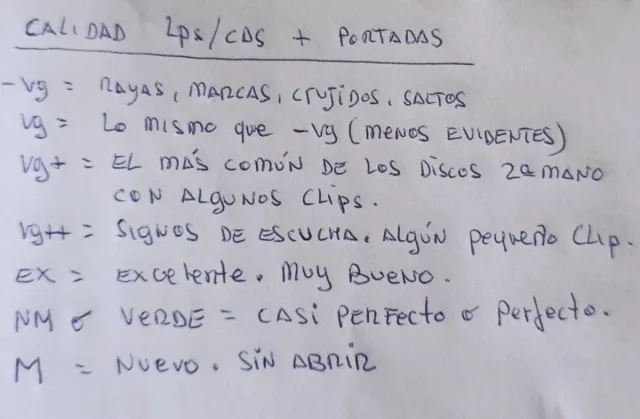 CALIDAD Lps/CDS + PORTADAS
-Vg = RAYAS, MARCAS, CRUJIDOS, SALTOS
Vg = Lo MISMO que -Vg (MENOS EVIDENTES)
Vg+ = EL MÁS COMÚN DE LOS DISCOS 2ª MANO
CON ALGUNOS CLIPS.
Vg++ = SIGNOS DE ESCUCHA. ALGÚN pequeño CLIP.
EX = EXCELENTE. MUY BUENO.
NM o VERDE = CASI PERFECTO o PERFECTO.
M = NUEVO. SIN ABRIR